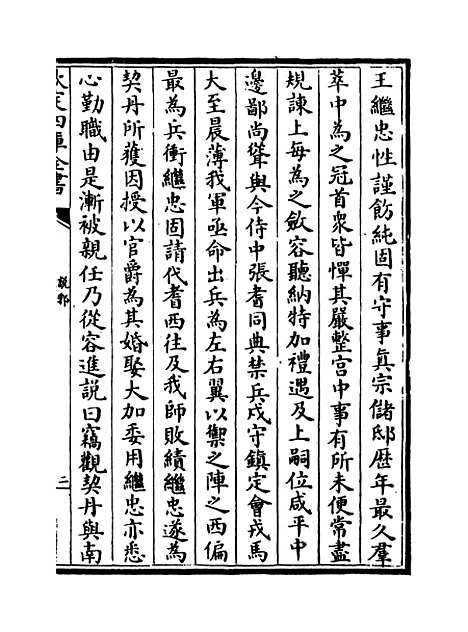 王繼忠性謹飭純固有守事真宗儲邸歴年最久羣
萃中為之冠首衆皆憚其嚴整宫中事有所未便常盡
規諫上每為之斂容聽納特加禮遇及上嗣位咸平中
邊鄙尚聳與今侍中張耆同典禁兵戍守鎮定會戎馬
大至晨薄我軍亟命出兵為左右翼以禦之陣之西偏
最為兵衝繼忠固請代耆西往及我師敗績繼忠遂為
契丹所獲因授以官爵為其婚娶大加委用繼忠亦悉
心勤職由是漸被親任乃從容進説曰竊觀契丹與南
欽定四庫全書
説郛
二